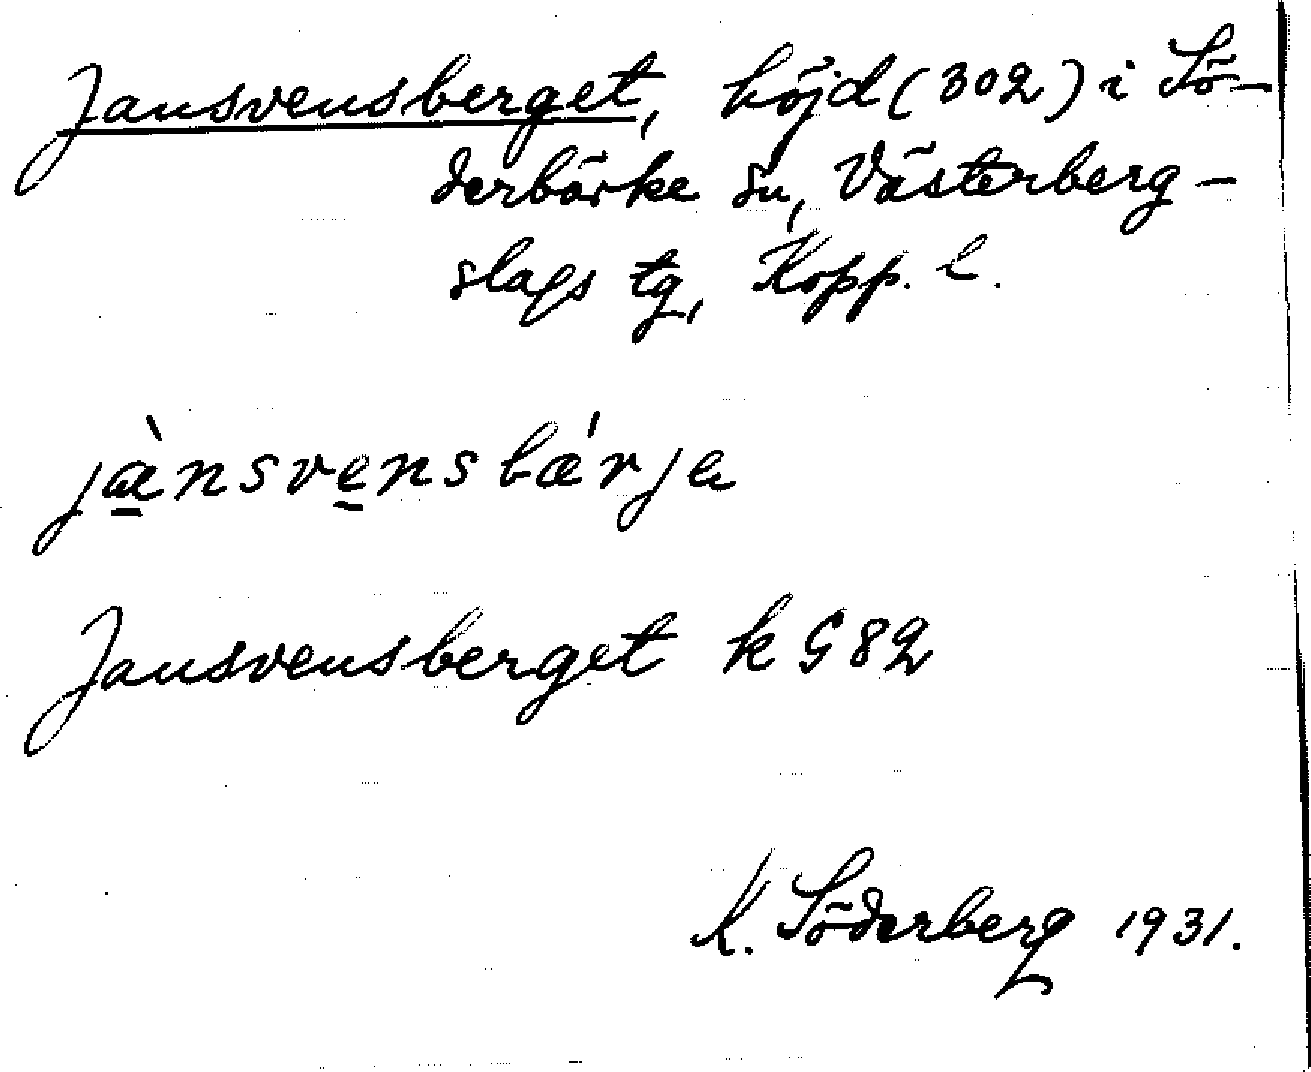 Jansvensberget, höjd (302) i Sö-
derbärke sn, Västerberg-
slags tg, Kopp. l.
jæ̀nsvensbǽrje
Jansvensberget k G 82
K. Söderberg 1931.